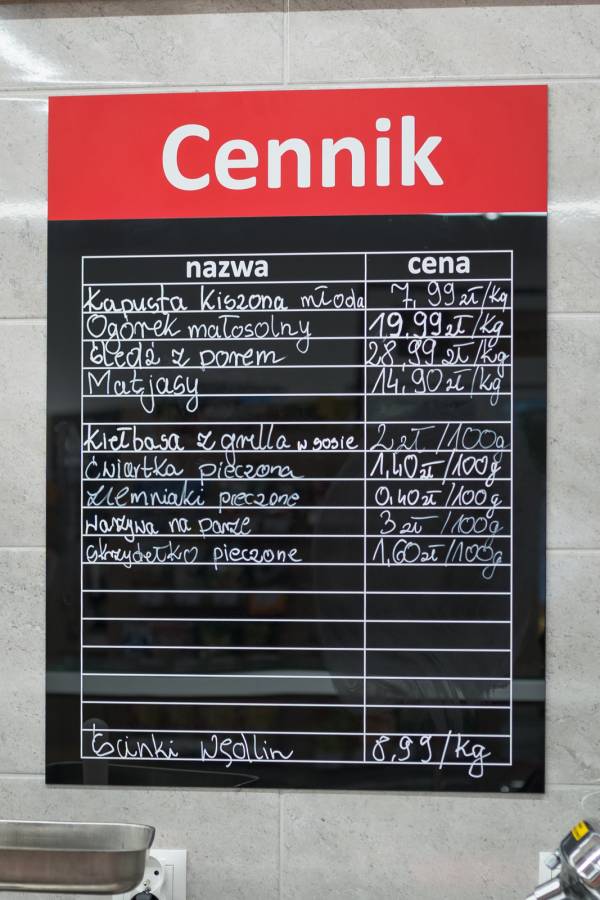 Cennik
nazwa cena
Kapusta kiszona młoda 7,99zł/kg
Ogórek małosolny 19,99zł/kg
śledź z porem 28,99zł/kg
Matjasy 14,90zł/kg
Kiełbasa z grilla w sosie 2zł/100g
ćwiartka pieczona 1,40zł/100g
ziemniaki pieczone 0,40zł/100g
warzywa na parze 3zł/100g
skrzydełko pieczone 1,60zł/100g
Ścinki wędlin 8,99/kg